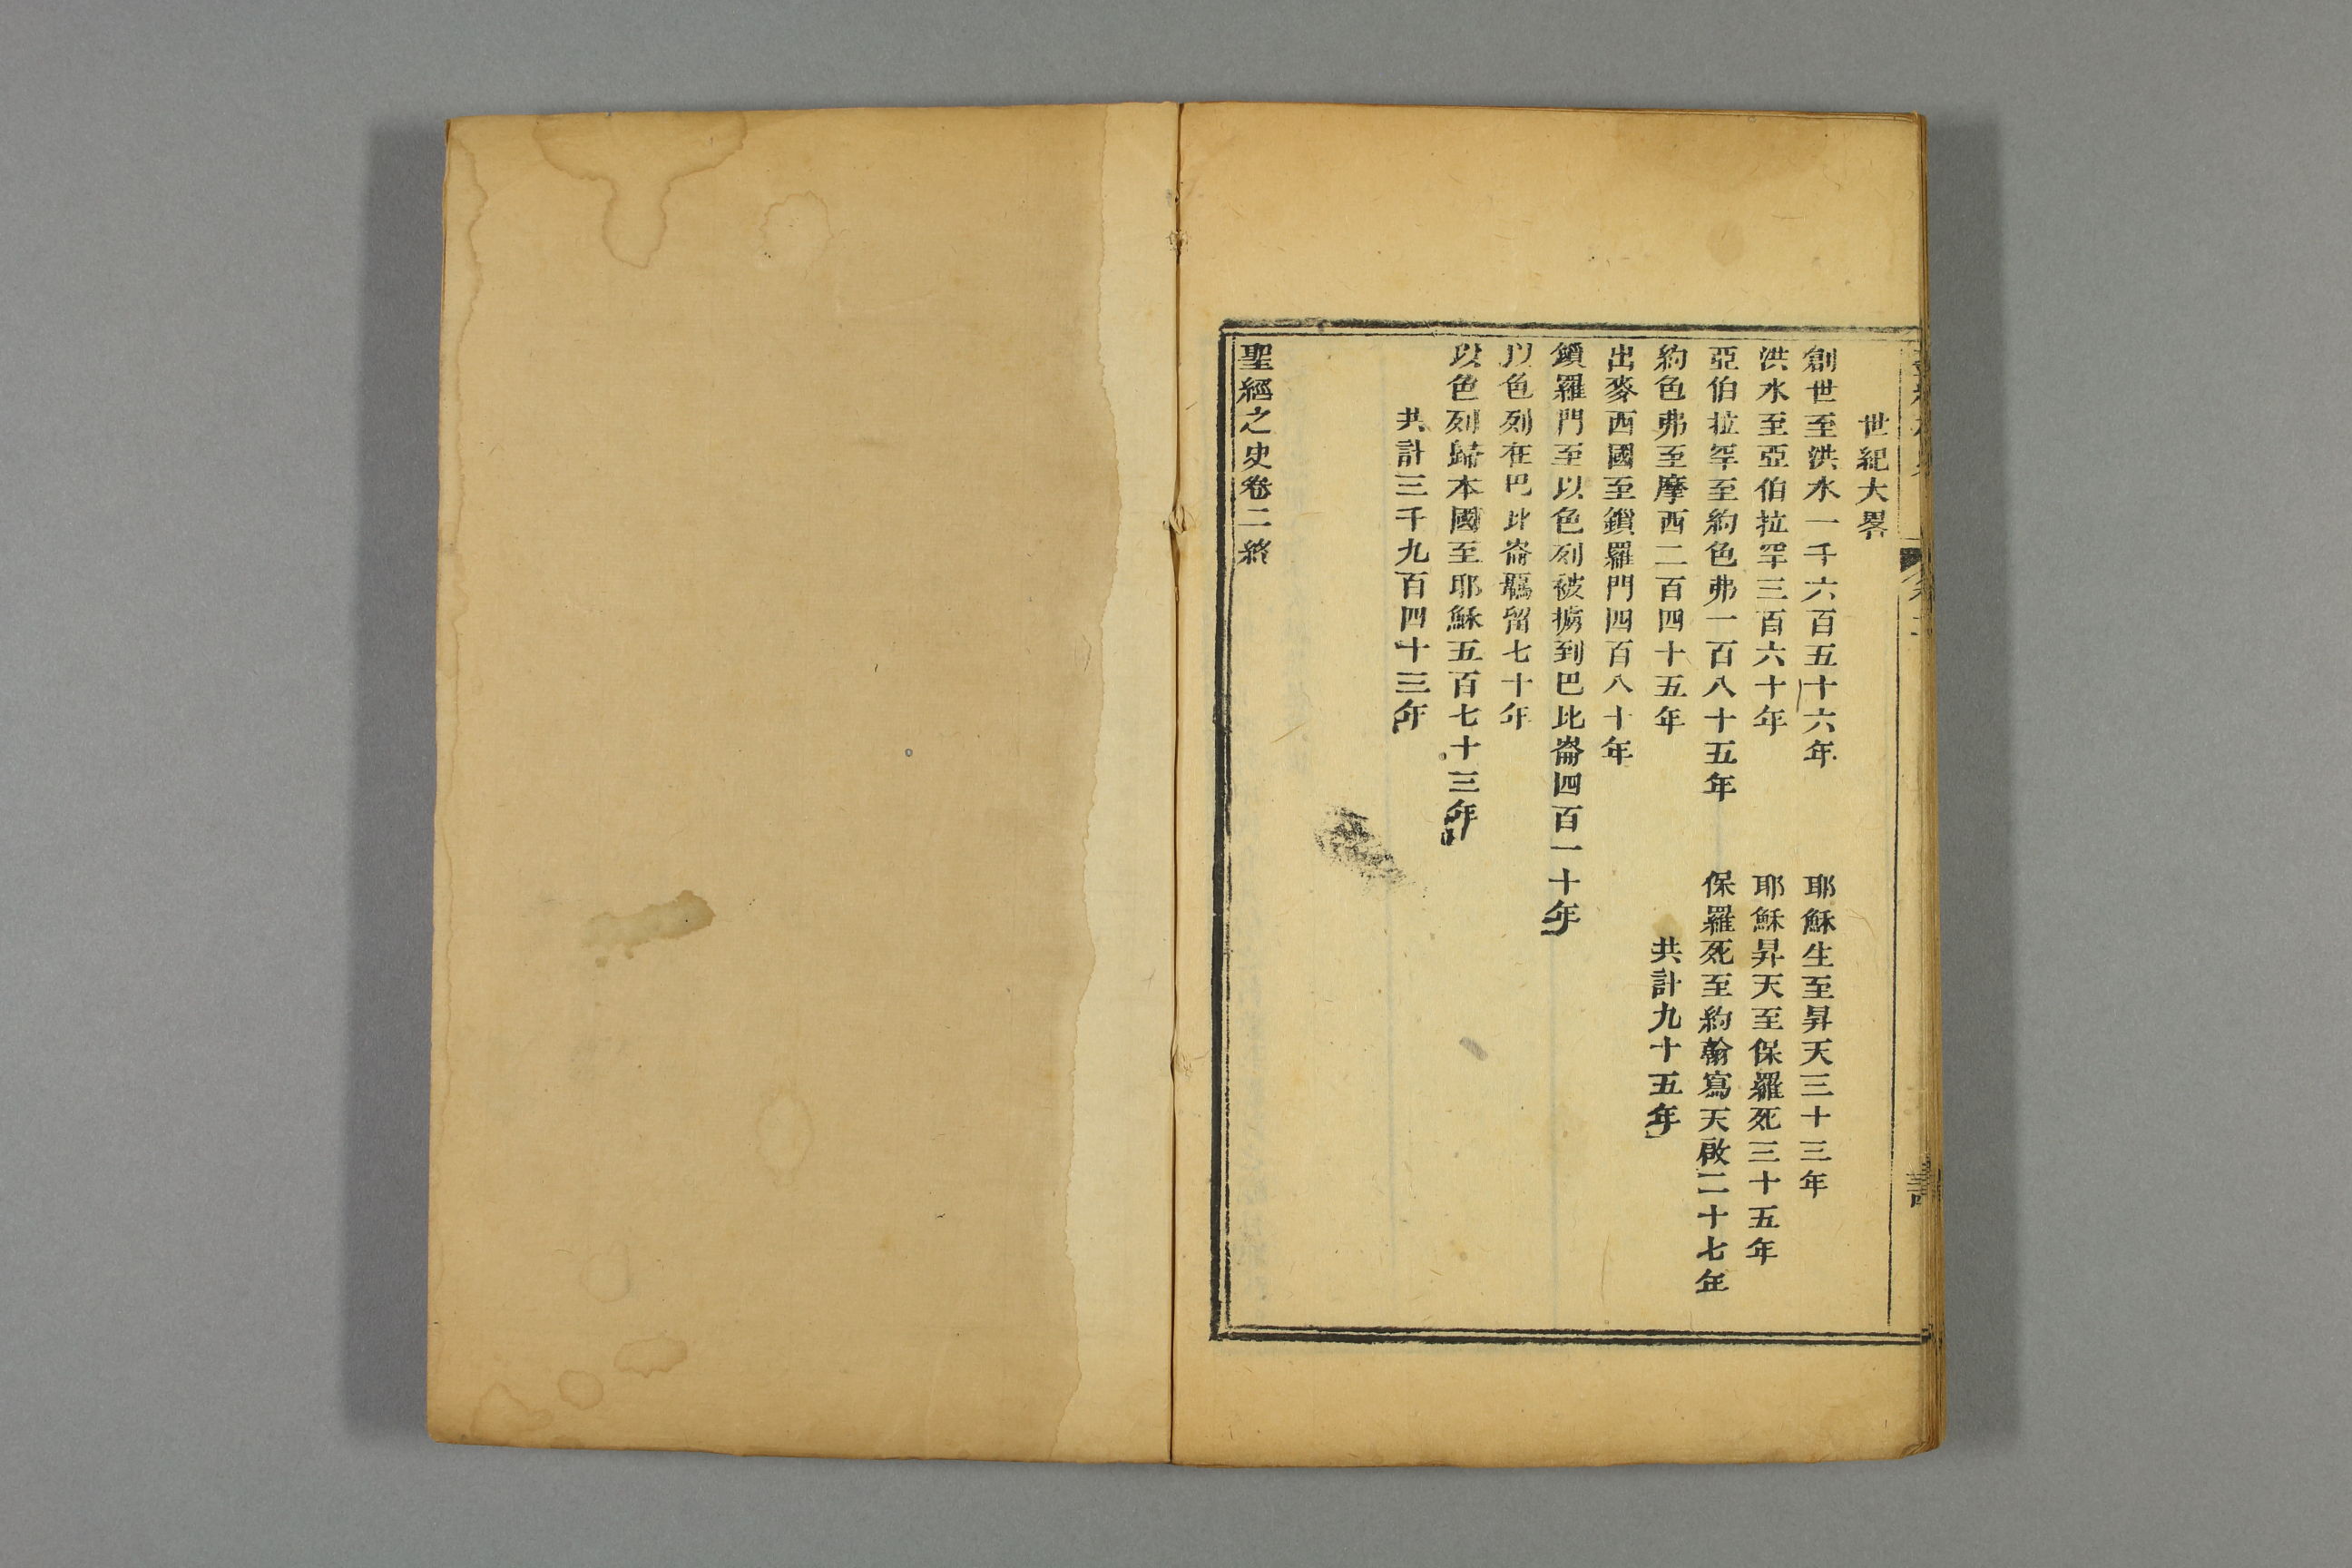 世紀大畧
創世至洪水一千六百五十六年
耶穌生至昇天三十三年
洪水至亞伯拉罕三百六十年
耶穌昇天至保羅死三十五年
亞伯拉罕至約色弗一百八十五年
保羅死至約翰寫天啟二十七年
約色弗至摩西二百四十五年
共計九十五年
出麥西國至鎖羅門四百八十年
鎖羅門至以色列被擄到巴比崙四百一十年
以色列在巴比崙羈留七十年
以色列歸本國至耶穌五百七十三年
共計三千九百四十三年
聖經之史卷二終